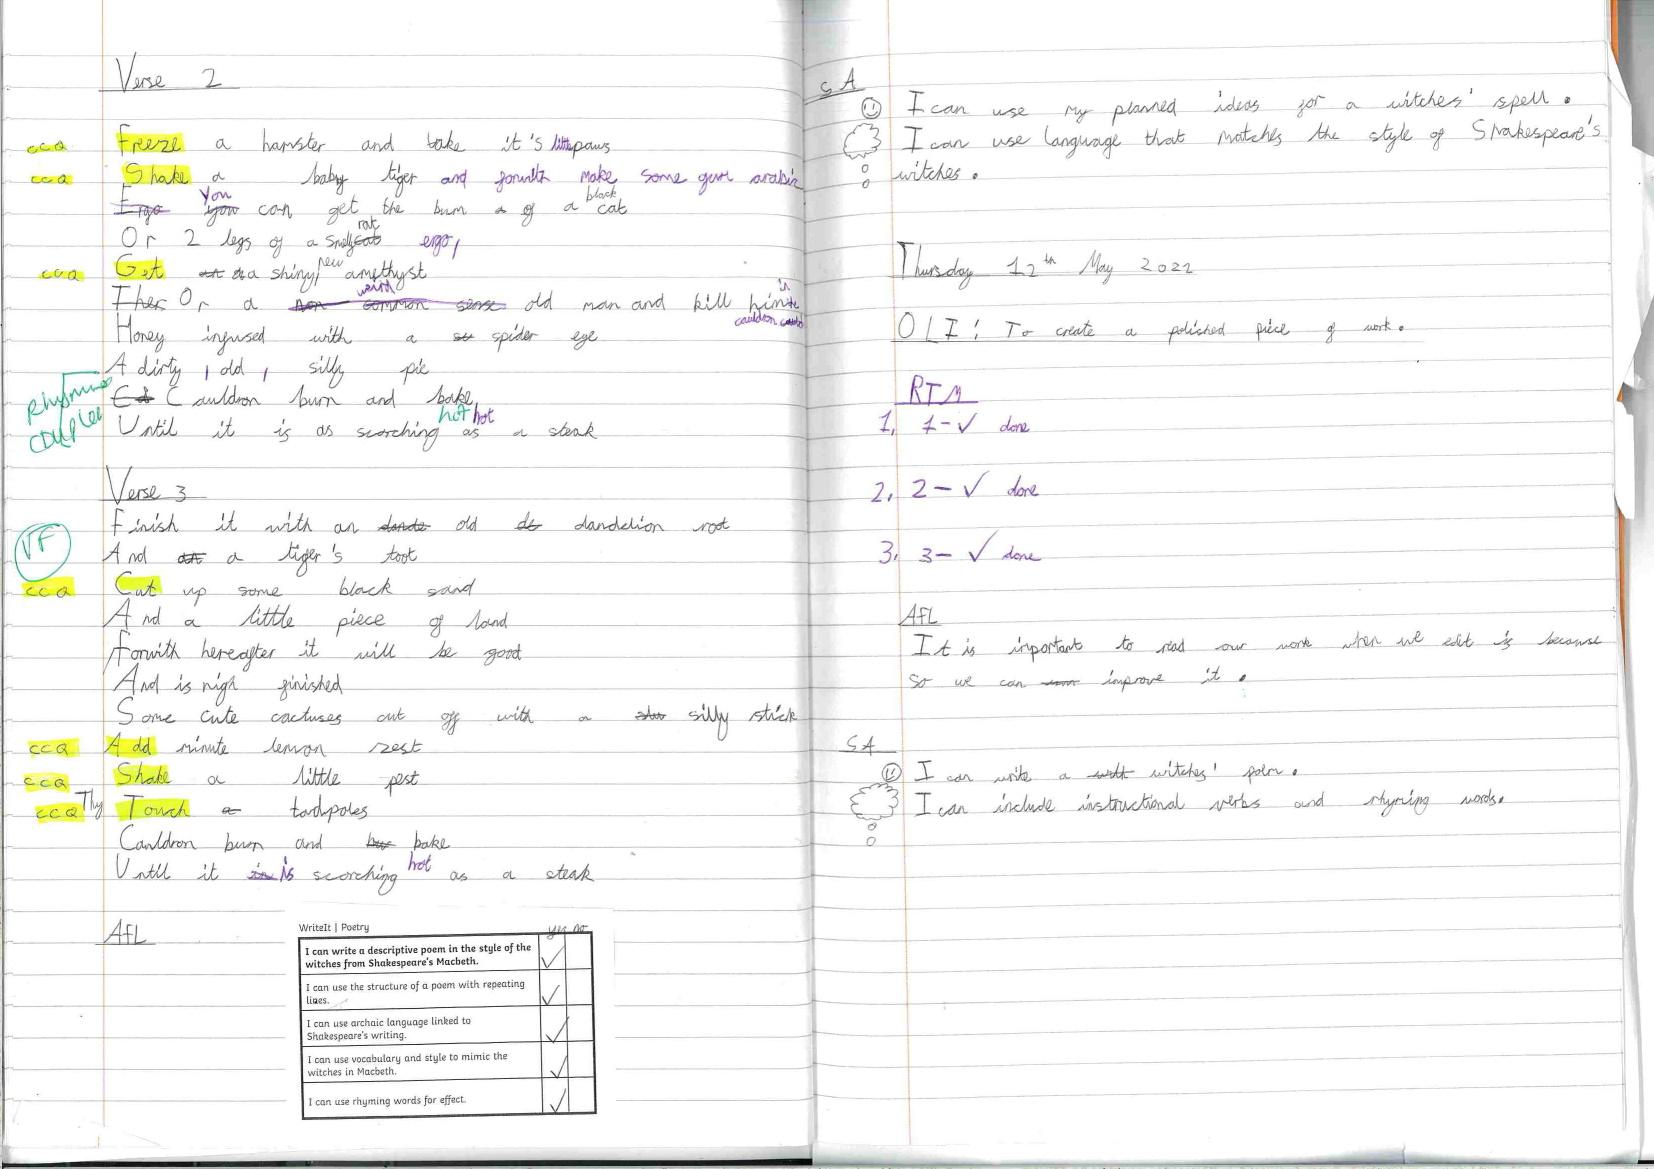 Verse 2
ccq Freeze a hamster and bake it's little paws
ccq Shake a baby tiger and forwith make some gum arabic
Ergo you You can get the burn a of a black cat
Or 2 legs of a smelly cat rat ergo,
ccq Get a shiny, new amethyst
Ther Or a non common sense weird old man and kill him in
cauldron
Honey infused with a spider eye
A dirty, old, silly pie
Rhyming couplet
Cauldron burn and bake,
Until it is as scorching hot hot as a steak
Verse 3
Finish it with an old dandelion root
VF
And a tiger's toot
ccq Cut up some black sand
And a little piece of land
Forwith hereafter it will be good
And is nigh finished
Some cute cactuses cut off with a silly stick
ccq Add minute lemon zest
ccq Shake a little pest
ccq Thy Touch a tadpoles
Cauldron burn and bake
Until it is scorching hot as a steak
AfL
WriteIt | Poetry
yes no
I can write a descriptive poem in the style of the
witches from Shakespeare's Macbeth.
I can use the structure of a poem with repeating
lines.
I can use archaic language linked to
Shakespeare's writing.
I can use vocabulary and style to mimic the
witches in Macbeth.
I can use rhyming words for effect.
SA
I can use my planned ideas for a witches' spell.
I can use language that matches the style of Shakespeare's
witches.
Thursday 12th May 2022
OLI: To create a polished piece of work.
RTM
1. 1-✓ done
2. 2-✓ done
3. 3-✓ done
AfL
It is important to read our work when we edit is because
so we can improve it.
SA
I can write a witches' poem.
I can include instructional verbs and rhyming words.